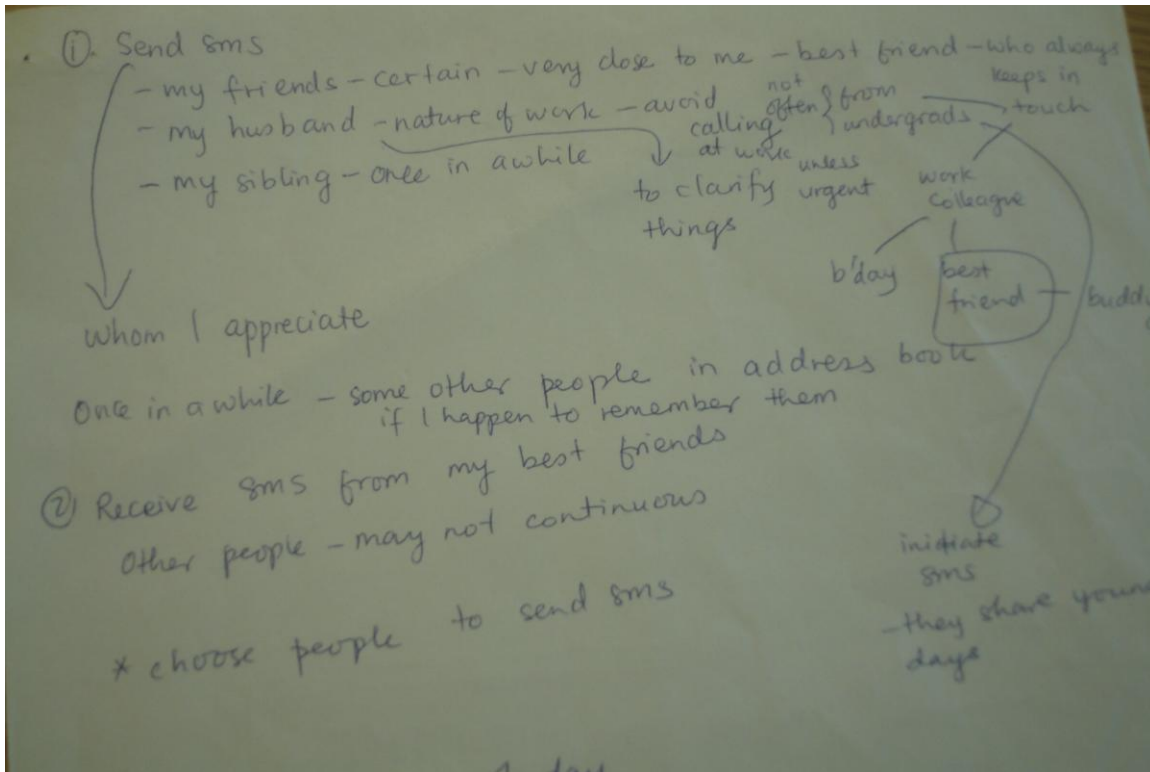 ① Send sms
- my friends - certain - very close to me - best friend - who always keeps in touch
- my husband - nature of work - avoid calling at work unless urgent
not often } from undergrads
to clarify things
- my sibling - once in awhile
work colleague
b'day
best friend
buddy
whom I appreciate
Once in a while - some other people in address book
if I happen to remember them
② Receive sms from my best friends
Other people - may not continuous
inidiate
sms
- they share young
days
* choose people to send sms